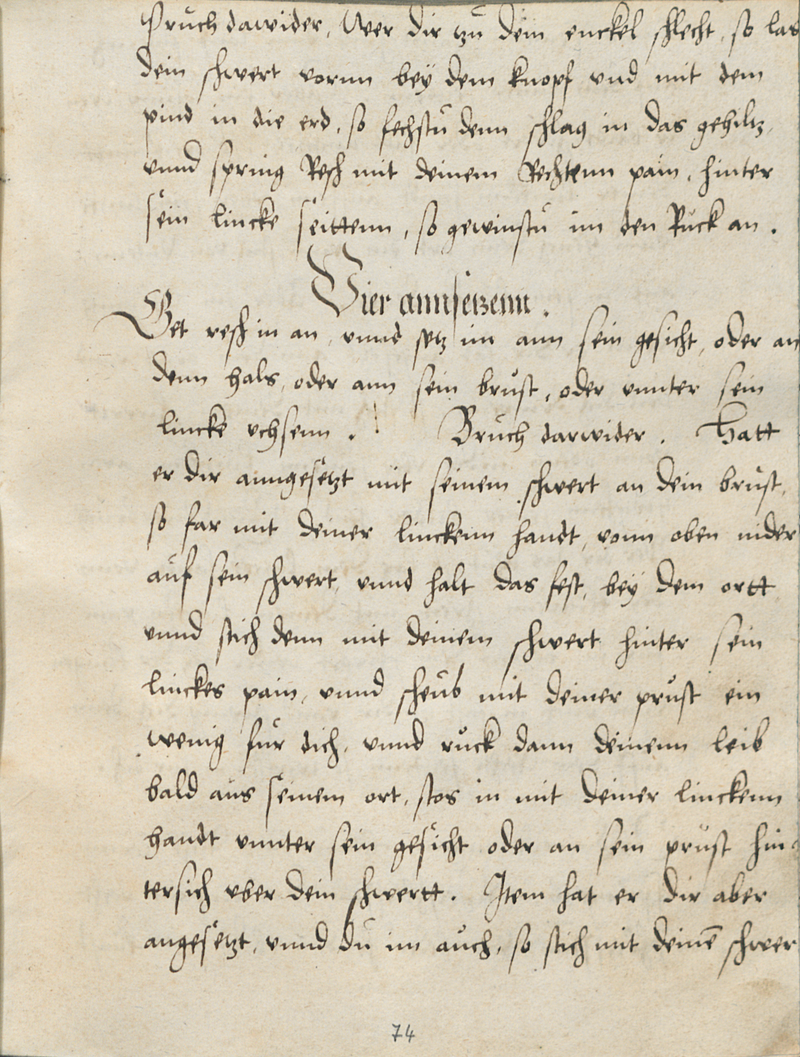 Pruch dawider, Wer dir zu dem enckel schlecht, so las
dein schwert vornn bey dem knopf vnd mit dem
pind in die erd, so fechstu denn schlag in das gehiltz,
vnnd spring Resch mit deinem Rechtenn pain, hinter
sein lincke seittenn, so gewinstu im den Ruck an.
Vier annsetzenn.
Get resch in an, vnnd setz im ann sein gesicht, oder an
denn hals, oder ann sein brust, oder vnnter sein
lincke vchsenn. Bruch darwider. Hatt
er dir anngesetzt mit seinem schwert an dein brust,
so far mit deiner linckenn handt, vonn oben nider
auf sein schwert, vnnd halt das fest, bey dem ortt
vnnd stich denn mit deinem schwert hinter sein
linckes pain, vnnd scheub mit deiner prust ein
wenig fur dich, vnnd ruck dann deinenn leib
bald aus seinem ort, stos in mit deiner linckenn
handt vnnter sein gesicht oder an sein prust hin-
tersich vber dein schwertt. Item hat er dir aber
angesetzt, vnnd du im auch, so stich mit deinē schwer
74